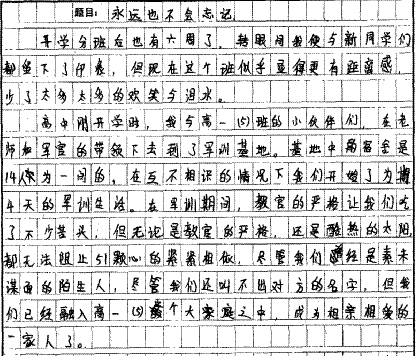 题目：永远也不会忘记
开学分班后也有六周了，转眼间我便与新同学们
都坐下了印象，但现在这个班似乎显得更有距离感，
少了太多太多的欢笑与泪水。
高中刚开学时，我与高一(5)班的小伙伴们，在老
师和军官的带领下去到了军训基地。基地中的宿舍是
14人为一间的，在互不相识的情况下我们开始了为期
4天的军训生活。在军训期间，教官的严格让我们吃
了不少苦头，但无论是教官的严格，还是酷热的太阳，
都无法阻止51颗心的紧紧相依，尽管我们曾经是素未
谋面的陌生人，尽管我们还叫不出对方的名字，但我
们已经融入高一(5)这个大家庭之中，成为相亲相爱的
一家人了。